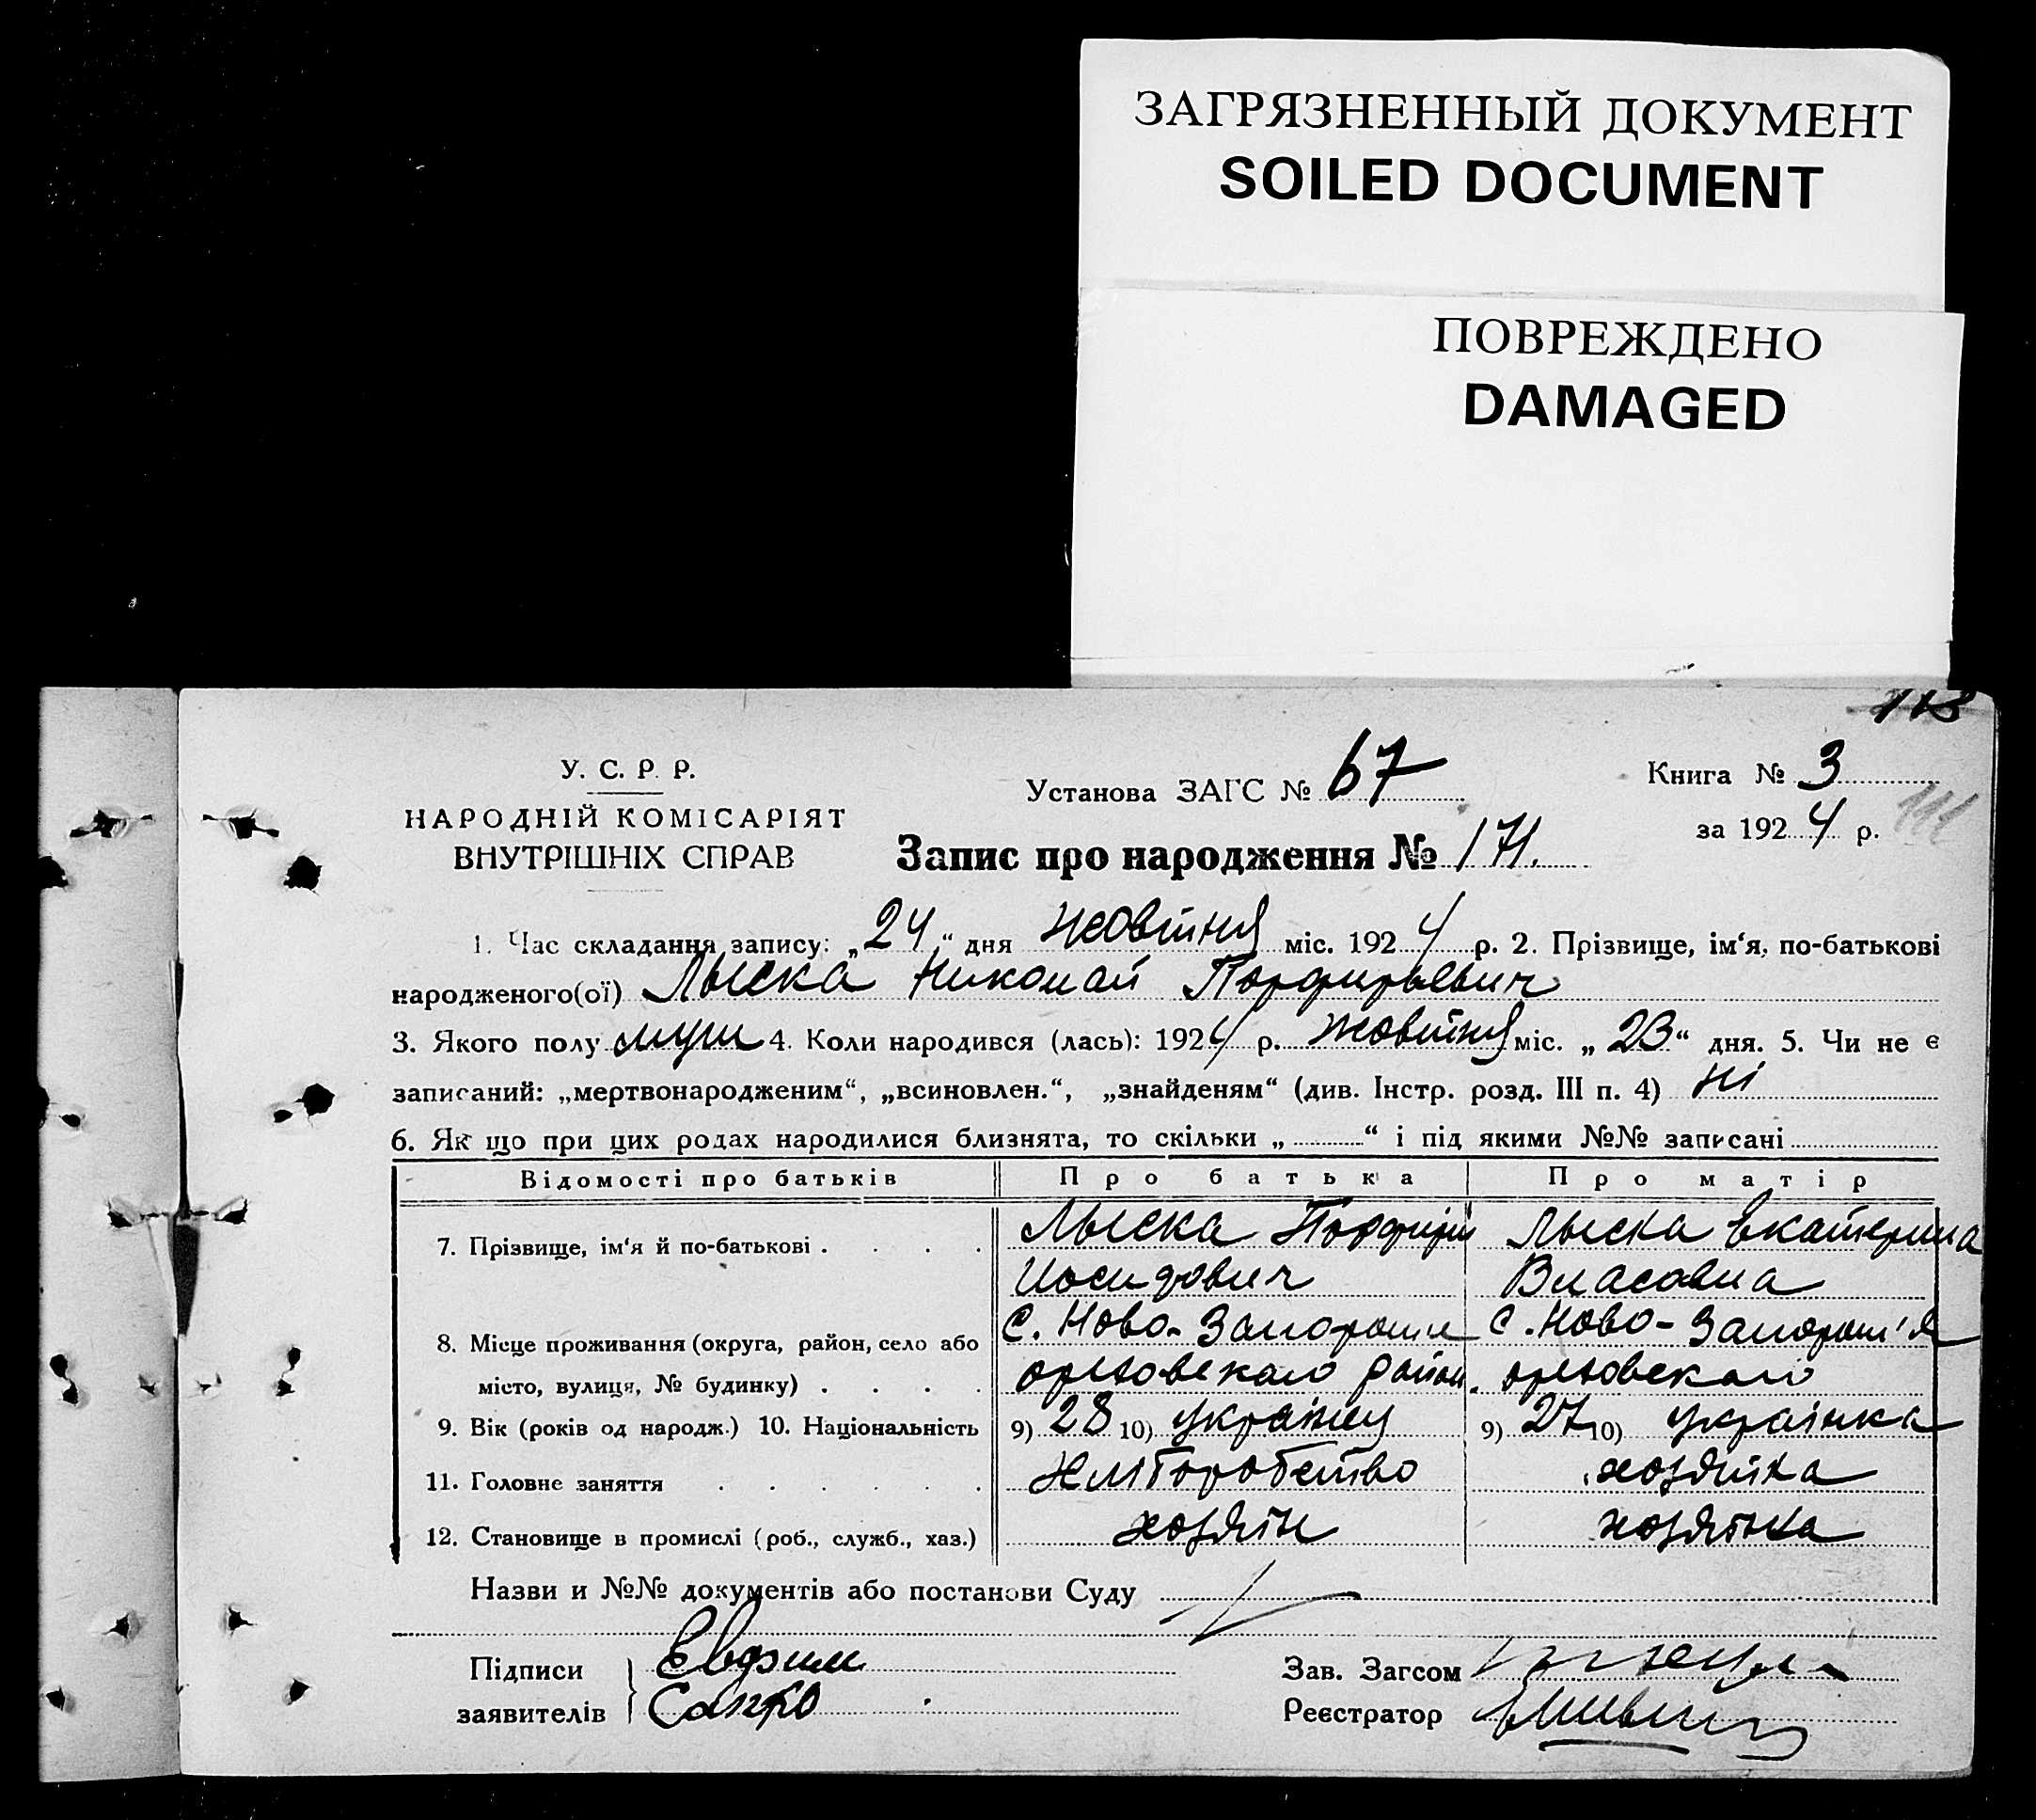 ЗАГРЯЗНЕННЫЙ ДОКУМЕНТ
SOILED DOCUMENT
ПОВРЕЖДЕНО
DAMAGED
113
У. С. Р. Р.
НАРОДНІЙ КОМІСАРІЯТ
ВНУТРІШНІХ СПРАВ
Установа ЗАГС № 67
Книга № 3
за 1924 р.
Запис про народження № 171.
1. Час складання запису: „24“ дня жовтня міс. 1924 р. 2. Прізвище, ім‘я, по-батькові
народженого(ої) Лыска Николай Порфирьевич
3. Якого полу муш 4. Коли народився (лась): 1924 р. жовтня міс. „23“ дня. 5. Чи не є
записаний: „мертвонародженим“, „всиновлен.“, „знайденям“ (див. Інстр. розд. III п. 4) ні
6. Як що при цих родах народилися близнята, то скільки „ “ і під якими №№ записані
Відомості про батьків Про батька Про матір
7. Прізвище, ім‘я й по-батькові . . . . Лыска Порфирий Лыска Екатерина
Иосидович Власовна
8. Місце проживання (округа, район, село або с. Ново-Запорожье с. Ново-Запорош'я
місто, вулиця, № будинку) . . . . ореховскаго район. ореховскаго
9. Вік (років од народж.) 10. Національність 9) 28 10) українец 9) 27 10) українка
11. Головне заняття . . . . . . Хліборобство хозяйка
12. Становище в промислі (роб., служб., хаз.) хозяін хозяйка
Назви и №№ документів або постанови Суду
Підписи Евфим
заявителів Сапко
Зав. Загсом
Реєстратор